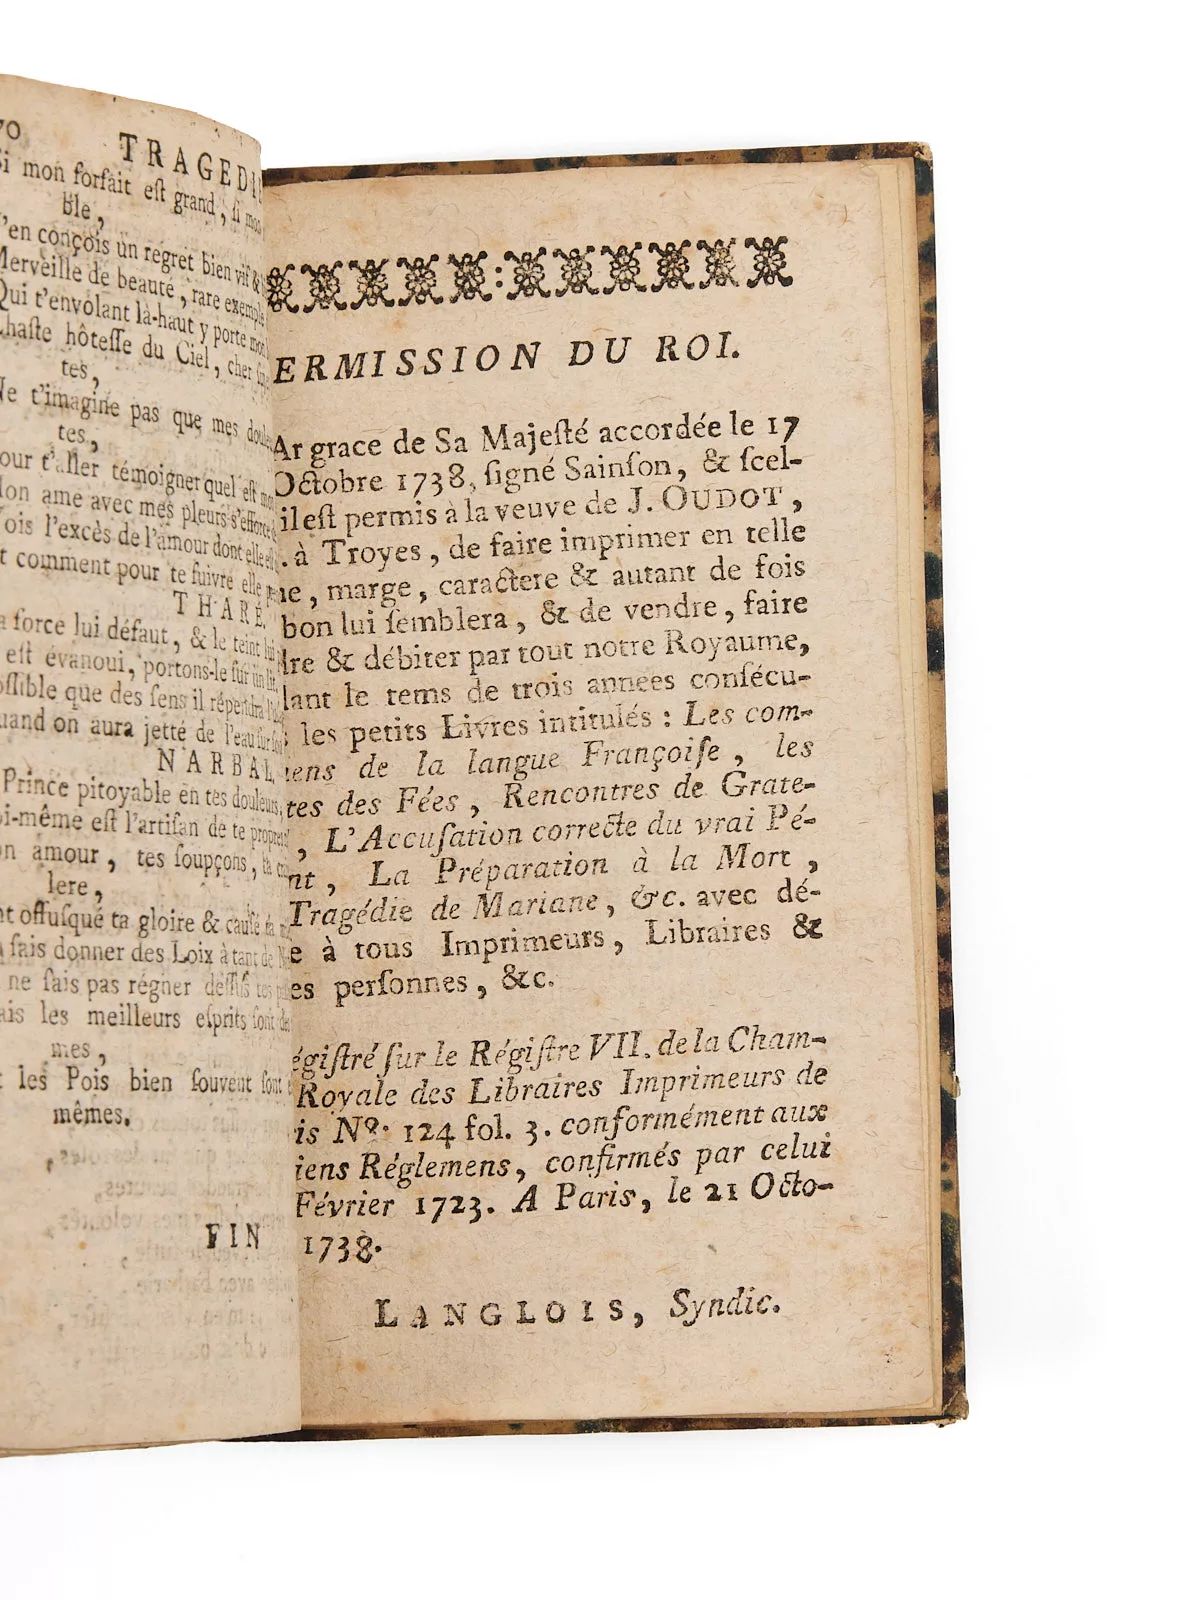 70 TRAGEDI
Si mon forfait est grand, si mon
ble,
J'en conçois un regret bien vif &
Merveille de beauté, rare exemple
Qui t'envolant là-haut y porte mon
Chaste hôtesse du Ciel, cher
tes,
Ne t'imagine pas que mes
tes,
our t'aller témoigner quel est mon
Mon ame avec mes pleurs s'efforce
Vois l'excès de l'amour dont elle
t comment pour te suivre elle
THARÉ,
a force lui défaut, & le teint lui
est évanoui, portons-le sur un lit,
ossible que des sens il répertdra
quand on aura jetté de l'eau sur son
NARBAL,
Prince pitoyable en tes douleurs,
oi-même est l'artisan de te propres
on amour, tes soupçons, ta
lere,
nt offusqué ta gloire & causé
sais donner des Loix à tant de
ne sais pas régner dessus tes
ais les meilleurs esprits font des
mes,
t les Pois bien souvent sont
mêmes.
FIN
ERMISSION DU ROI.
Ar grace de Sa Majesté accordée le 17
Octobre 1738, signé Sainson, & scel-
il est permis à la veuve de J. OUDOT,
. à Troyes, de faire imprimer en telle
ne, marge, caractere & autant de fois
bon lui semblera, & de vendre, faire
dre & débiter par tout notre Royaume,
dant le tems de trois années consécu-
les petits Livres intitulés : Les com-
iens de la langue Françoise, les
tes des Fées, Rencontres de Grate-
, L'Accusation correcte du vrai Pé-
nt, La Préparation à la Mort,
Tragédie de Mariane, &c. avec dé-
e à tous Imprimeurs, Libraires &
es personnes, &c.
égistré sur le Régistre VII. de la Cham-
Royale des Libraires Imprimeurs de
is Nº. 124 fol. 3. conformément aux
iens Réglemens, confirmés par celui
Février 1723. A Paris, le 21 Octo-
1738.
LANGLOIS, Syndic.